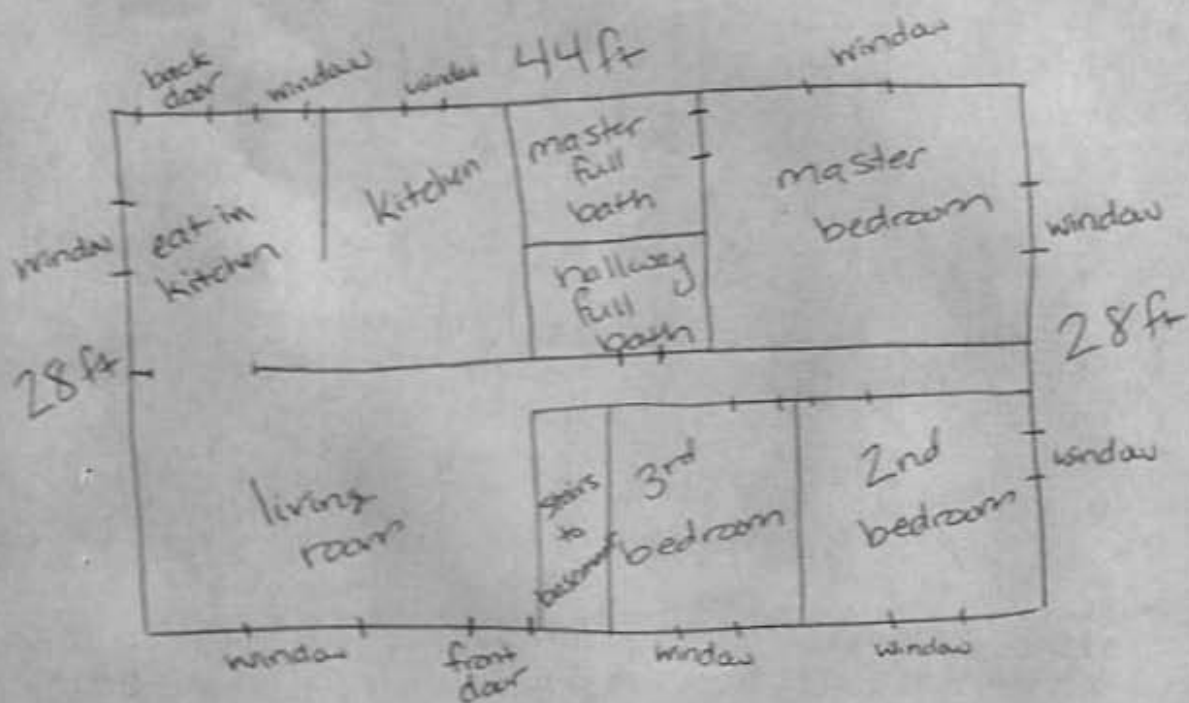 back
door
window
window
44ft
window
eat in
kitchen
kitchen
master
full
bath
master
bedroom
window
window
hallway
full
bath
28ft
28ft
living
room
stairs
to
basement
3rd
bedroom
2nd
bedroom
window
window
front
door
window
window